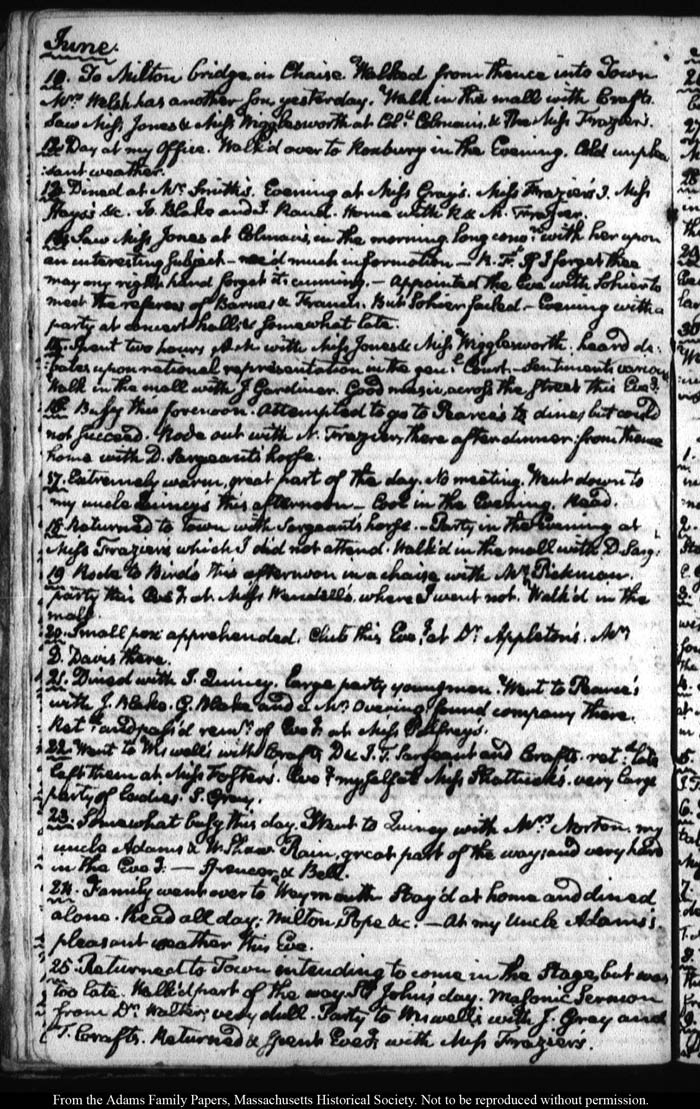 June.
10. To Milton bridge in Chaise. Walked from thence into Town
Mrs. Welsh has another son yesterday. Walk in the mall with Crafts.
Saw Miss Jones & Miss Wigglesworth at Coll. Colman's. & The Miss Frazier's.
12. Day at my Office. Walk'd over to Roxbury in the Evening. Cold unplea
sant weather.
13. Dined at Mr. Smith's. Evening at Miss Gray's. Miss Frazier's 3. Miss
Hays's &c. J. Blake and J. Rand. Home with R & M. Frazier.
14. Saw Miss Jones at Colman's, in the morning. long with her upon
an interesting subject — much information — M. F. If I forget thee
may my right hand forget its cunning. — Appointed the Eve with Sohier to
meet the referees of Barnes & Francis. But Sohier failed — Evening with a
party at concert hall; & somewhat late.
15. Spent two hours A.M. with Miss Jones & Miss Wigglesworth. heard de-
bates upon national representation in the genl. Court. — Sentiments various
Walk in the mall with J. Gardiner. Good music, across the street this Eveg.
16. Busy this forenoon. Attempted to go to Pearce's to dine; but could
not succeed. Rode out with N. Frazier, there after dinner: from thence
home with D. Sargeant's horse.
17. Extremely warm, great part of the day. No meeting. Went down to
my uncle Quincy's this afternoon — Cool in the Evening. Read.
18. Returned to Town with Sargeant's horse. — Party in the Evening at
Miss Fraziers which I did not attend. Walk'd in the mall with D. Sarg:
19. Rode to Bird's this afternoon in a chaise with Mr. Pickman.
party this Eveg. at Miss Wendell's, where I went not. Walk'd in the
mall.
20. Small pox apprehended. Club this Eveg. at Dr. Appleton's. Mr.
D. Davis there.
21. Dined with J. Quincy. Large party young men. Went to Pearce's
with J. Blake. G. Blake and a Mr. Overing found company there.
Ret'd. and pass'd remr. of Eveg. at Miss Palfrey's.
22. Went to Wiswell's with Crafts D & J. T. Sargeant and Crafts ret'd. late
left them at Miss Foster's. Eveg. myself at Miss Shattuck's. very large
party of Ladies. S. Gray.
23. Somewhat busy this day. Went to Quincy with Mrs. Norton. my
uncle Adams & W. Shaw. Rain, great part of the way; and very hard
in the Eveg: — Spencer & Bell.
24. Family went over to Weymouth. Stay'd at home and dined
alone. Read all day: Milton, Pope &c. — At my Uncle Adams's.
pleasant weather this Eve.
25. Returned to Town intending to come in the Stage, but was
too late. Walk'd part of the way. St. John's day. Masonic Sermon
from Dr. Walter; very dull. Party to Wiswell's with J. Gray and
T. Crafts. Returned & Spent Eveg. with Miss Frazier's.
From the Adams Family Papers, Massachusetts Historical Society. Not to be reproduced without permission.